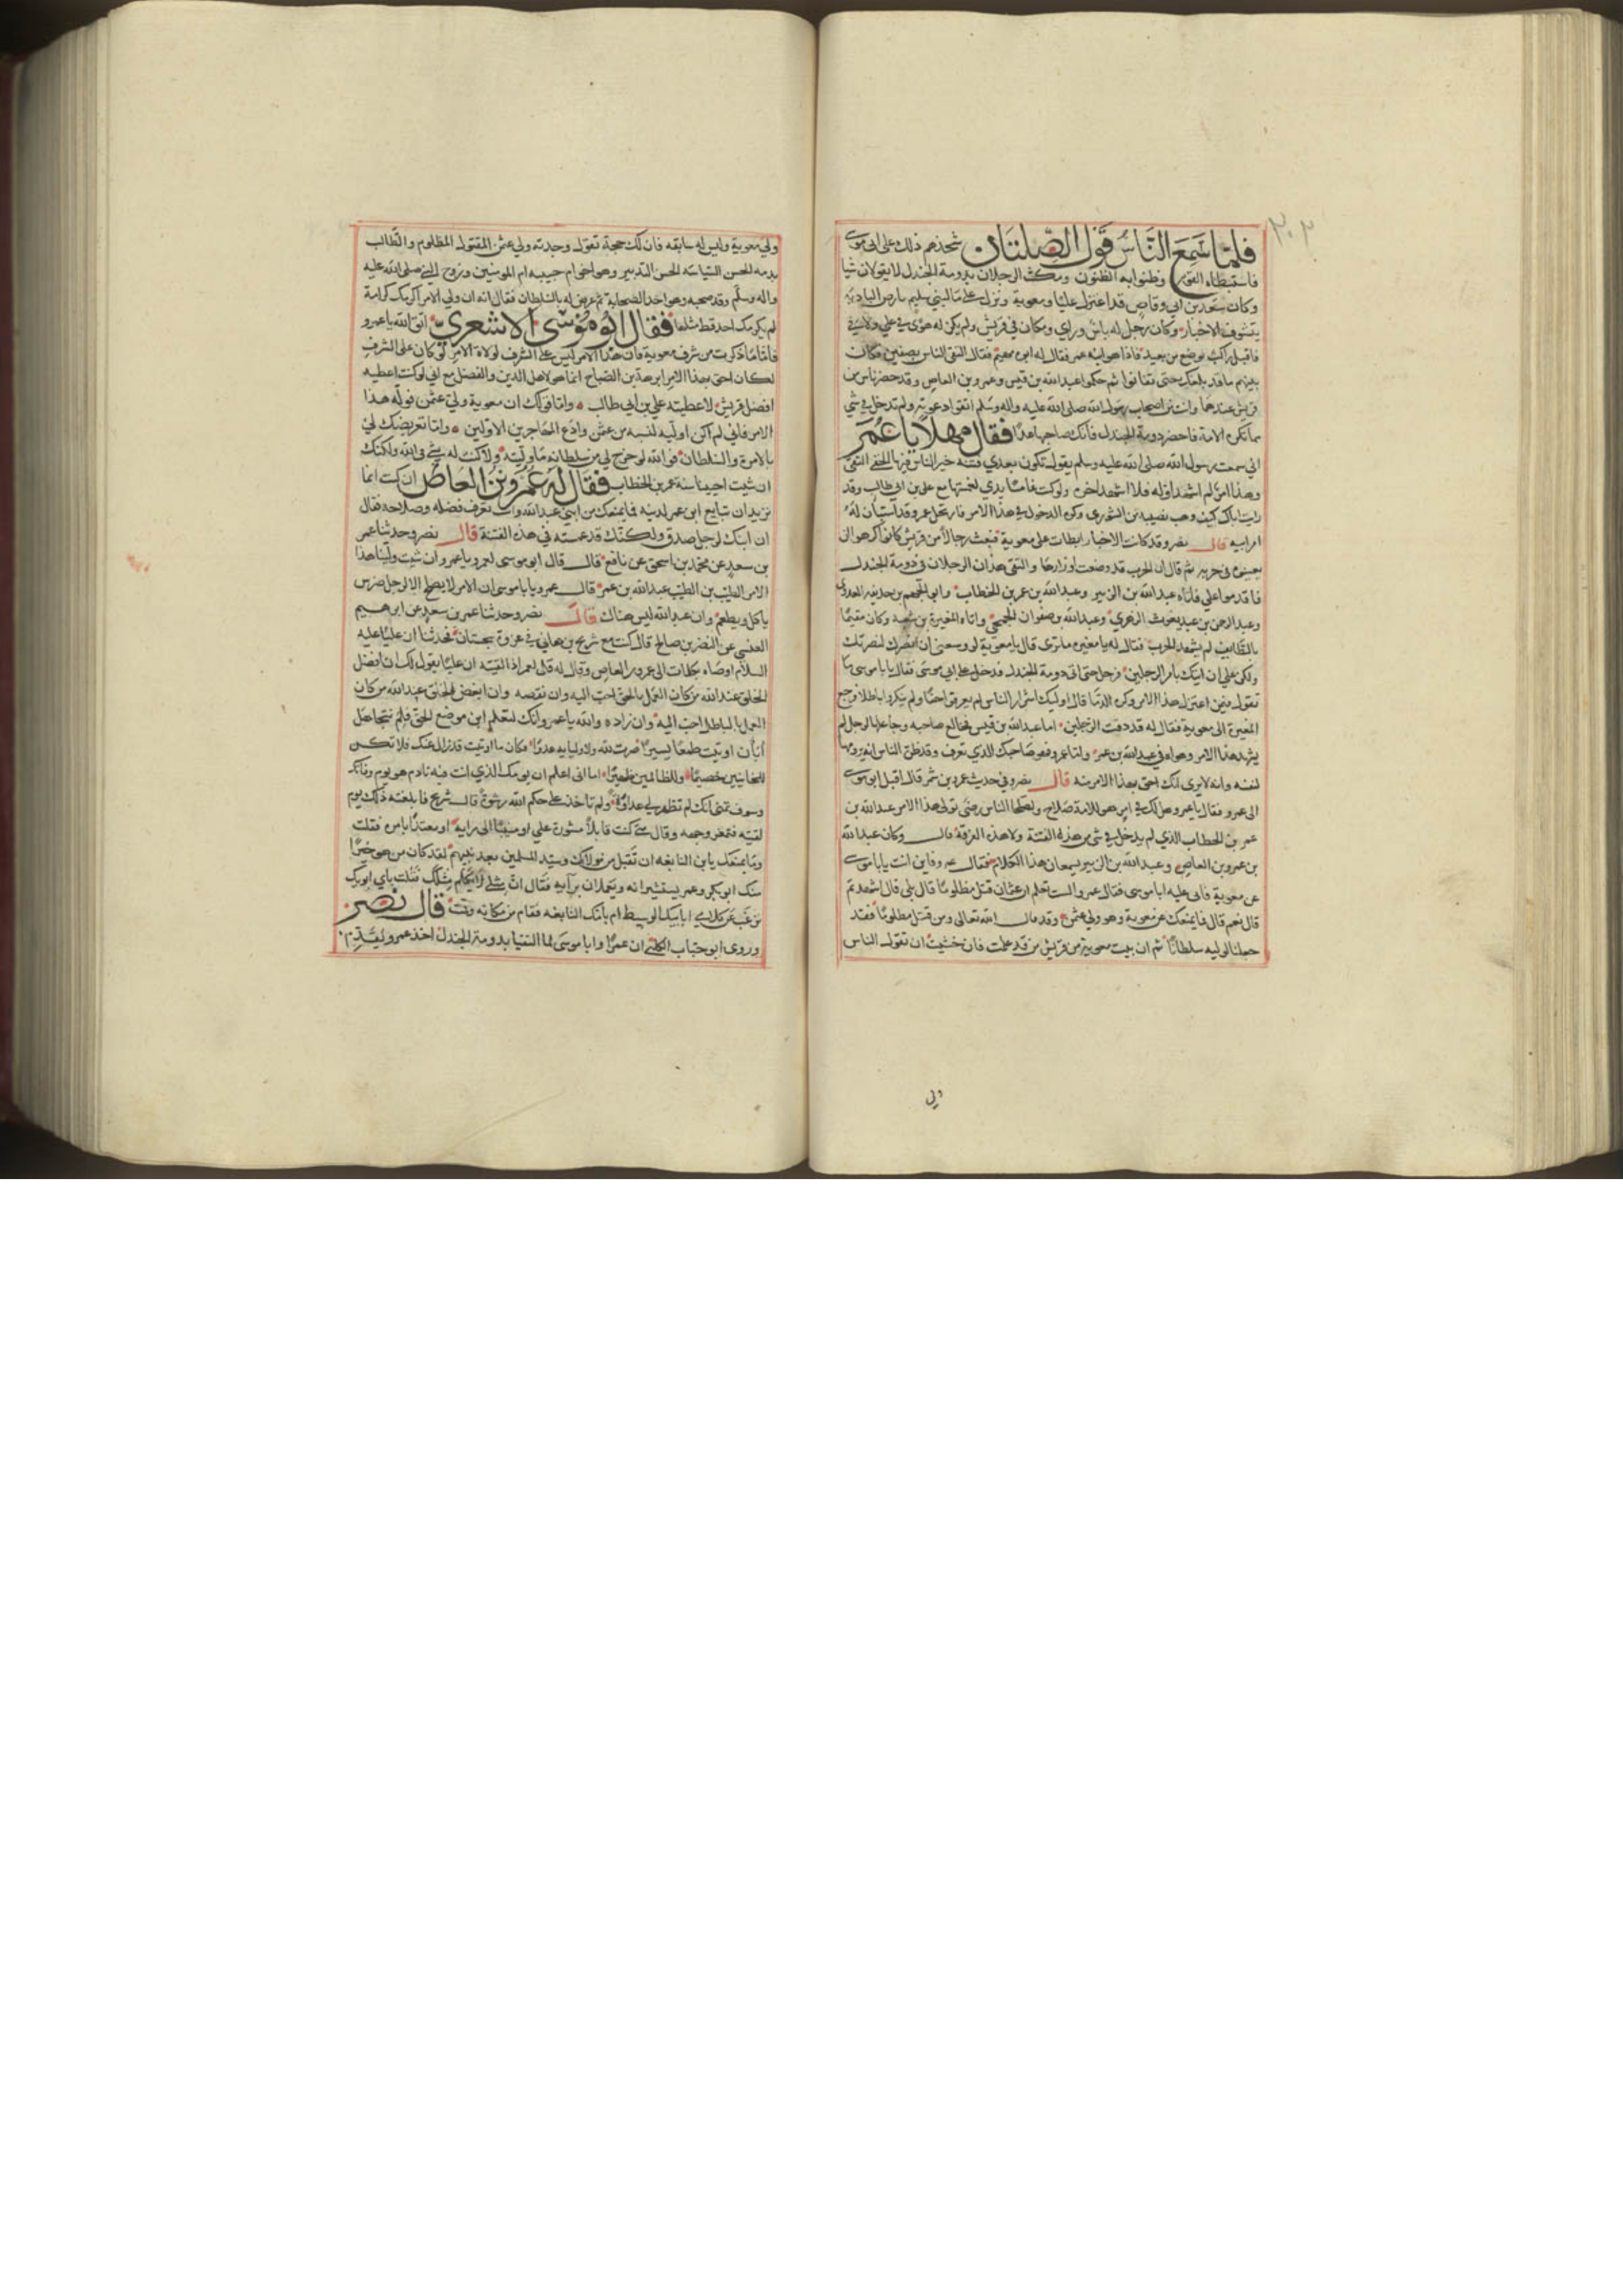 ٣٠٢
فلما سمع الناس قول الصلتان شحذهم ذلك على ابي موسى
فاستبطاه القوم وظنوا به الظنون ومكث الرجلان بدومة الجندل لا يقولان شيا
وكان سعد بن ابي وقاص قد اعتزل عليا ومعوية ونزل على ما لبني سليم بارض البادية
يتشوف الاخبار وكان رجل له باس وراي ومكان في قريش ولم يكن له هوى في علي ولا في
فاقبل راكب يوضع من بعيد فاذا هو ابنه عمر فقال له ابي مهيم فقال التقى الناس بصفين فكان
بينهم ما قد بلغك حتى تفانوا ثم حكموا عبد الله بن قيس وعمرو بن العاص وقد حضر ناس من
قريش عندهما وانت من اصحاب رسول الله صلى الله عليه واله وسلم اتقوا دعوته ولم تدخل في شي
مما تكره الامة فاحضر دومة الجندل فانك صاحبها غدا فقال مهلا يا عمر
اني سمعت رسول الله صلى الله عليه وسلم يقول تكون بعدي فتنة خير الناس فيها الخفي التقي
وهذا امر لم اشهد اوله فلا اشهد اخره ولو كنت غامسا يدي لغمستها مع علي بن ابي طالب وقد
رايت اباك كيف وهب نصيبه من الشورى وكره الدخول في هذا الامر فارتحل عمر وقد استبان له
امر ابيه قال نصر وقد كانت الاخبار ابطات على معوية فبعث رجالا من قريش كانوا كرهوا ان
يعينوه في حربه ثم قال ان الحرب قد وضعت اوزارها والتقى هذان الرجلان في دومة الجندل
فاقدموا علي فاتاه عبد الله بن الزبير وعبد الله بن عمر بن الخطاب وابي الجهم بن حذيفة العدوي
وعبد الرحمن بن عبد يغوث الزهري وعبد الله بن صفوان الجمحي واتاه المغيرة بن شعبة وكان مقيما
بالطايف لم يشهد الحرب فقال له يا مغيرة ما ترى قال يا معوية لو وسعني ان انصرك لنصرتك
ولكن علي ان اتيك بامر الرجلين فرحل حتى اتى دومة الجندل فدخل على ابي موسى فقال يابا موسى ما
تقول فيمن اعتزل هذا الامر وكره الدما قال اوليك اشرار الناس لم يعرفوا حقا ولم ينكروا باطلا فرجع
المغيرة الى معوية فقال له قد ذقت الرجلين اما عبد الله بن قيس فخالع صاحبه وجاعلها لرجل لم
يشهد هذا الامر وهواه في عبد الله بن عمر واما عمرو فهو صاحبك الذي تعرف وقد ظن الناس انه يرومها
لنفسه وانه لا يرى انك احق بهذا الامر منه قال نصر وفي حديث عمرو بن شمر قال اقبل ابو موسى
الى عمرو فقال يا عمرو هل لك في امر هو للامة صلاح ولصلحا الناس رضى نولى هذا الامر عبد الله بن
عمر بن الخطاب الذي لم يدخل في شي من هذه الفتنة ولا هذه الفرقة قال وكان عبد الله
بن عمرو بن العاص وعبد الله بن الزبير يسمعان هذا الكلام فقال عمرو فاين انت يابا موسى
عن معوية فابى عليه ابا موسى فقال عمرو الست تعلم ان عثمان قتل مظلوما قال بلى قال اشهد ثم
قال نعم قال فما يمنعك عن معوية وهو ولي عثمن وقد قال الله تعالى ومن قتل مظلوما فقد
جعلنا لوليه سلطانا ثم ان بيت معوية من قريش من قد علمت فان خشيت ان تقول الناس
ولي
ولي معوية وليس له سابقة فان لك حجة تقول وجدته ولي عثمن المقتول المظلوم والطالب
بدمه الحسن السياسة الحسن التدبير وهو اخو ام حبيبه ام المومنين وزوج النبي صلى الله عليه
واله وسلم وقد صحبه وهو احد الصحابة ثم عرض له بالسلطان فقال انه ان ولي الامر اكرمك كرامة
لم يكرمك احد قط مثلها فقال ابوه موسى الاشعري اتق الله يا عمرو
فاما ما ذكرت من شرف معوية فان هذا الامر ليس على الشرف لولاة الامر لو كان على الشرف
لكان احق بهذا الامر ابرهة بن الصباح انما هو لاهل الدين والفضل مع اني لو كنت اعطيه
افضل قريش لاعطيته علي بن ابي طالب واما قولك ان معوية ولي عثمن فوله هذا
الامر فاني لم اكن اوليه لنسبه من عثمن وادع المهاجرين الاولين واما تعريضك لي
بالامرة والسلطان فوالله لو خرج لي من سلطانه ما وليته ولا كنت له شي في الله ولكنك
ان شيت احيينا سنة عمر بن الخطاب فقال له عمرو بن العاص ان كنت انما
تريد ان تبايع ابن عمر لدينه فما يمنعك من ابني عبد الله وانت تعرف فضله وصلاحه فقال
ان ابنك لرجل صدق ولكنك قد غمسته في هذه الفتنة قال نصر وحدثنا عمر
بن سعد عن محمد بن اسحق عن نافع قال قال ابو موسى لعمرو يا عمرو ان شيت ولينا هذا
الامر الطيب بن الطيب عبد الله بن عمر قال عمرو يابا موسى ان الامر لا يصلح الا لرجل ضرس
ياكل ويطعم وان عبد الله ليس هناك قال نصر وحدثنا عمر بن سعد عن ابرهيم
العنسي عن النضر بن صالح قال كنت مع شريح بن هاني في غزوة سجستان فحدثنا ان عليا عليه
السلام اوصاه بكلمات الى عمرو بن العاص وقال له قل لعمرو اذا لقيته ان عليا يقول لك ان افضل
الخلق عند الله من كان العمل بالحق احب اليه وان نقصه وان ابغض الخلق عبد الله من كان
العمل بالباطل احب اليه وان زاده والله يا عمرو انك لتعلم اين موضع الحق فلم تتجاهل
ابان اوتيت طمعا يسيرا صرت لله ولاوليايه عدوا فكان ما اوتيت قد زال عنك فلا تكن
للخاينين خصيما وللظالمين ظهيرا اما اني اعلم ان يومك الذي انت فيه نادم هو يوم وفاتك
وسوف تتمنى انك لم تظهر لي عداوة ولم تاخذ على حكم الله رشوة قال شريح فابلغته ذلك يوم
لقيته فتمعر وجهه وقال متى كنت قابلا مشورة علي او منيبا الى رايه او معتدا بامره فقلت
وما يمنعك يابن النابغه ان تقبل من مولاك وسيد المسلمين بعد نبيهم لقد كان من هو خيرا
منك ابو بكر وعمر يستشيرانه ويعملان برايه فقال ان مثلي لا يكلم مثلك فقلت باي ابويك
ترغب عن كلامي ابابيك الوسيط ام بامك النابغه فقام من مكانه وقمت قال نصر
وروى ابو جناب الكلبي ان عمرا وابا موسى لما التقيا بدومة الجندل اخذ عمرو يقدم